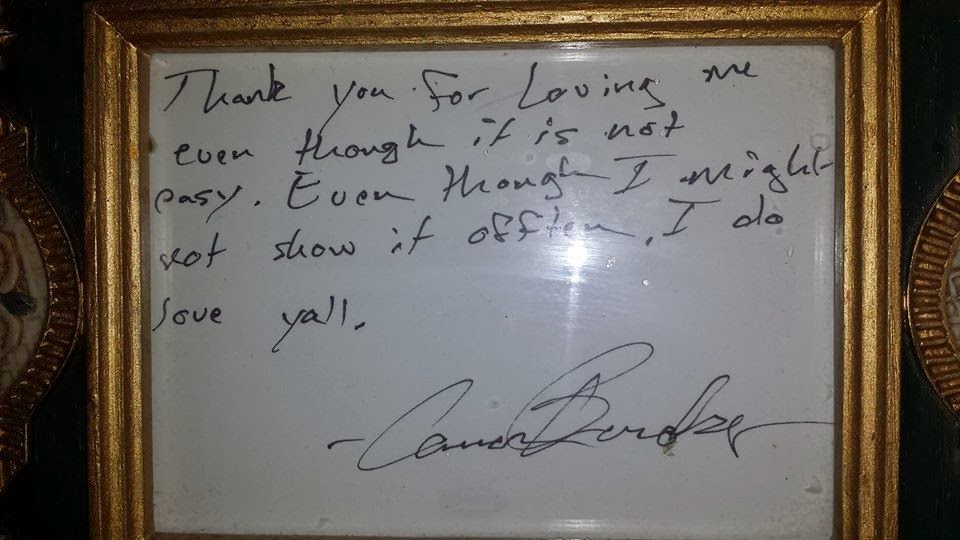 Thank you for Loving me
even though it is not
easy. Even though I might
not show it offten, I do
love yall.